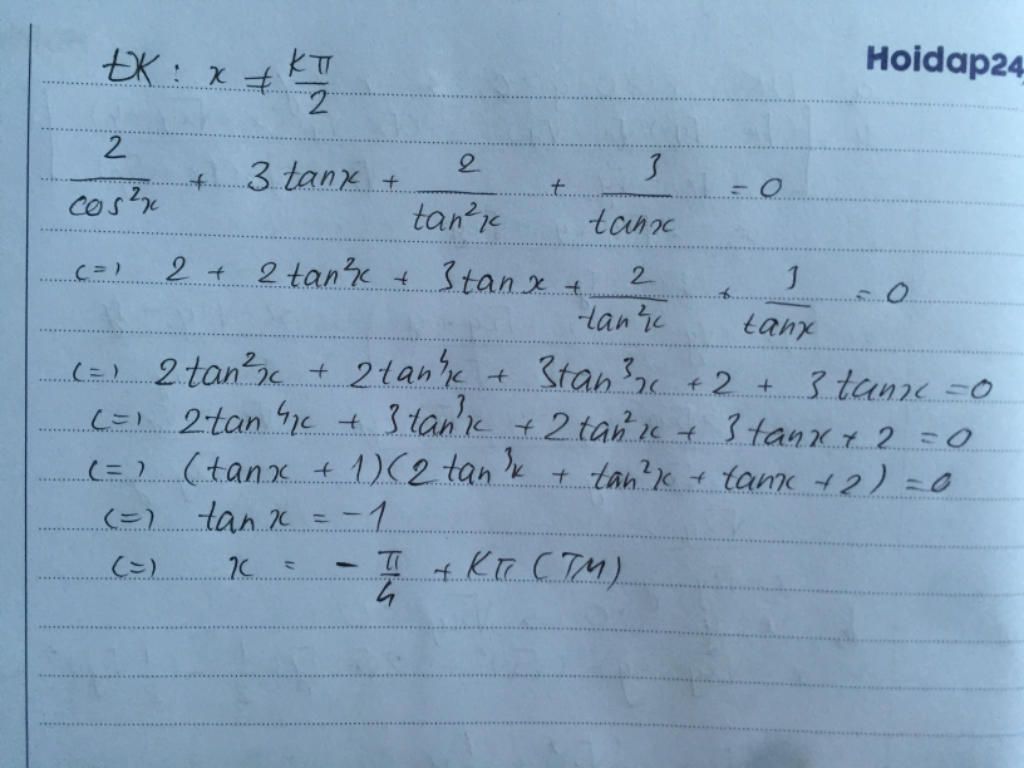 Hoidap24
ĐK: x ≠ kπ/2
2/cos²x + 3tanx + 2/tan²x + 3/tanx = 0
<=> 2 + 2tan²x + 3tanx + 2/tan²x + 3/tanx = 0
<=> 2tan²x + 2tan⁴x + 3tan³x + 2 + 3tanx = 0
<=> 2tan⁴x + 3tan³x + 2tan²x + 3tanx + 2 = 0
<=> (tanx + 1)(2tan³x + tan²x + tanx + 2) = 0
<=> tanx = -1
<=> x = -π/4 + kπ (TM)